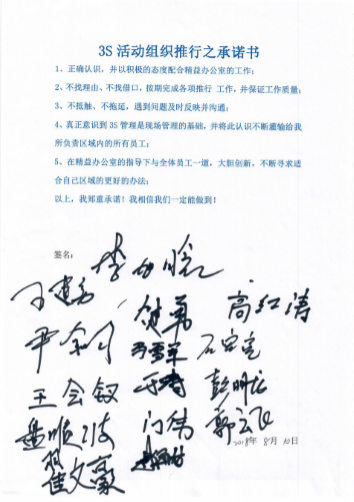 3S活动组织推行之承诺书
1、正确认识，并以积极的态度配合精益办公室的工作；
2、不找理由、不找借口，按期完成各项推行 工作，并保证工作质量；
3、不抵触、不拖延，遇到问题及时反映并沟通；
4、真正意识到 3S 管理是现场管理的基础，并将此认识不断灌输给我
所负责区域内的所有员工；
5、在精益办公室的指导下与全体员工一道，大胆创新，不断寻求适
合自己区域的更好的办法；
以上，我郑重承诺！我相信我们一定能做到！
签名：
高红涛
王会钗
彭明龙
盘顺波
门伟
郭云飞
崔文豪
2018年 8月 10日